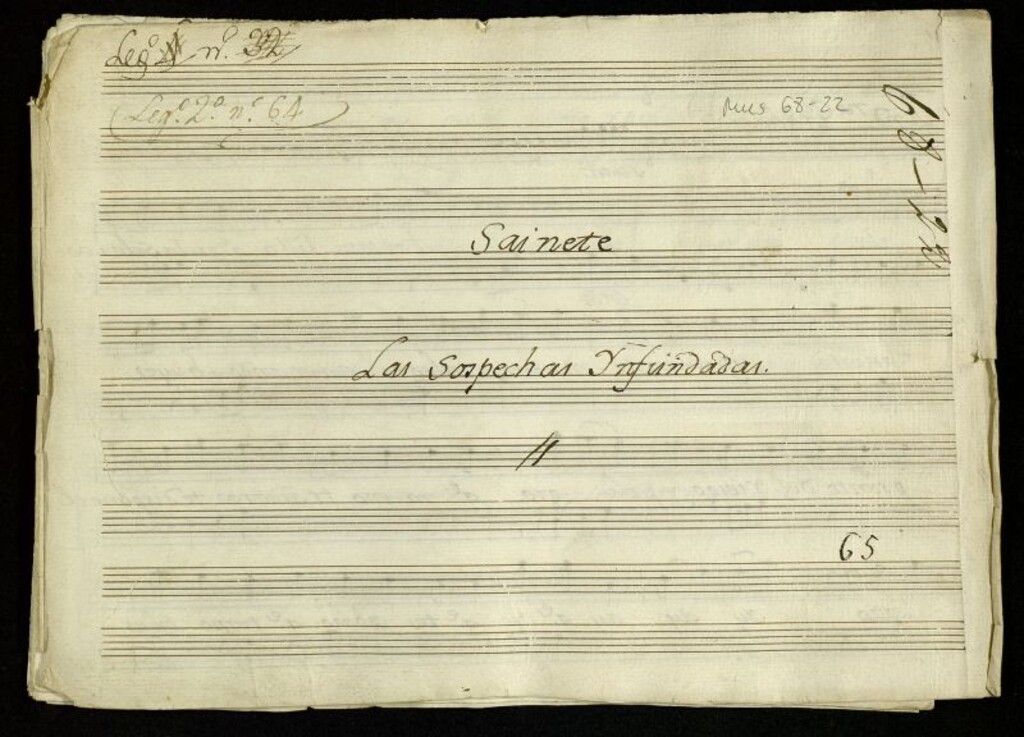 Leg.º nº. 32
Leg.º 2.º n.º 64
Mus 68-22
68-22
Sainete
Las Sospechas Ynfundadas.
65